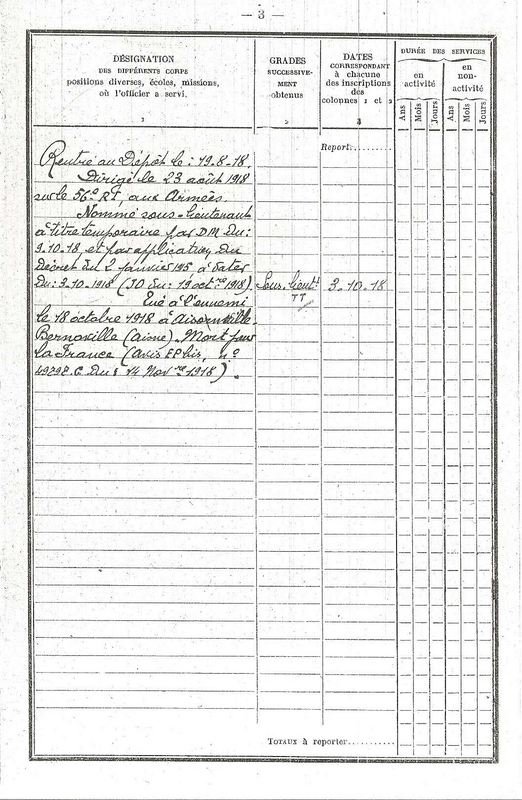 — 3 —
DÉSIGNATION
DES DIFFÉRENTS CORPS
positions diverses, écoles, missions,
où l'officier a servi.
1
GRADES
SUCCESSIVE-
MENT
obtenus
2
DATES
CORRESPONDANT
à chacune
des inscriptions
des
colonnes 1 et 2
3
DURÉE DES SERVICES
en
activité
en
non-
activité
Ans
Mois
Jours
Ans
Mois
Jours
Report........
Rentré au Dépôt le : 19.8.18.
Dirigé le 23 août 1918
sur le 56e RI, aux Armées.
Nommé sous-lieutenant
à titre temporaire par DM du :
9.10.18, et par application du
Décret du 2 janvier 195 à dater
du : 3.10.1918 (JO du : 19 oct.re 1918).
Sous-lieut.
TT
3.10.18
Tué à l'ennemi
le 18 octobre 1918 à Aisonville-
Bernoville (Aisne). Mort pour
la France (Avis EP bis, n°
49797.C du : 14 Nov.re 1918).
TOTAUX à reporter..........